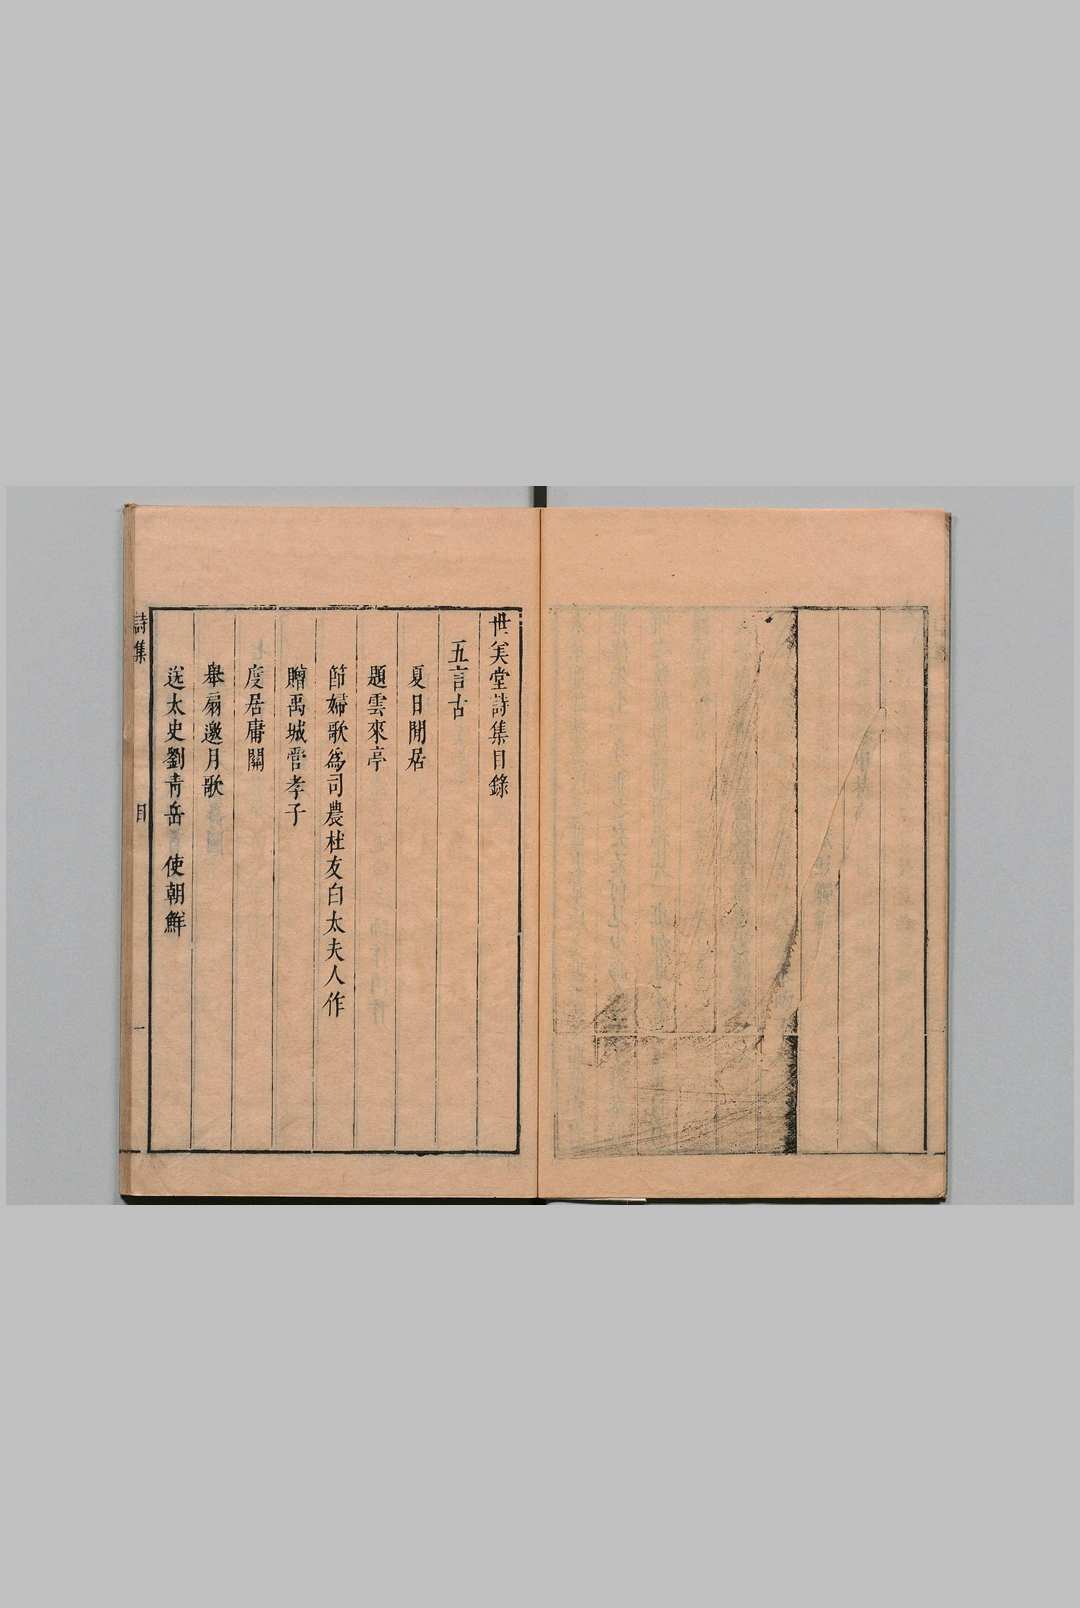 世美堂詩集目錄
五言古
夏日閒居
題雲來亭
節婦歌為司農杜友白太夫人作
贈禹城訾孝子
度居庸關
舉扇邀月歌
送太史劉青岳使朝鮮
詩集
目
一